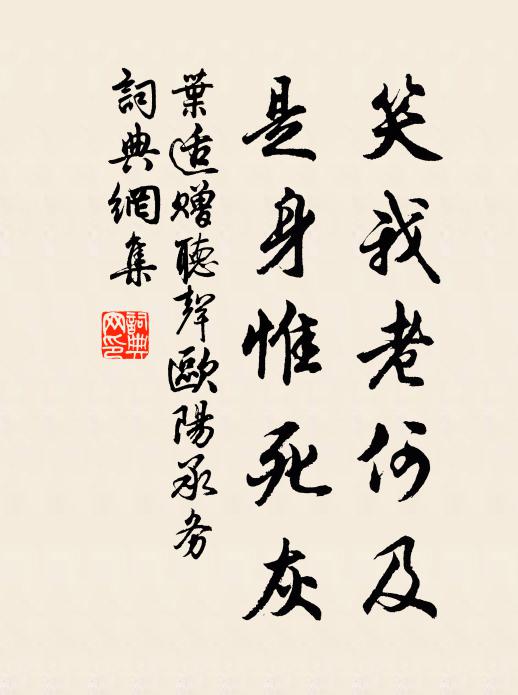 笑我老何及
是身惟死灰
葉适贈聽聲歐陽承务
詞典網集
詞典网印